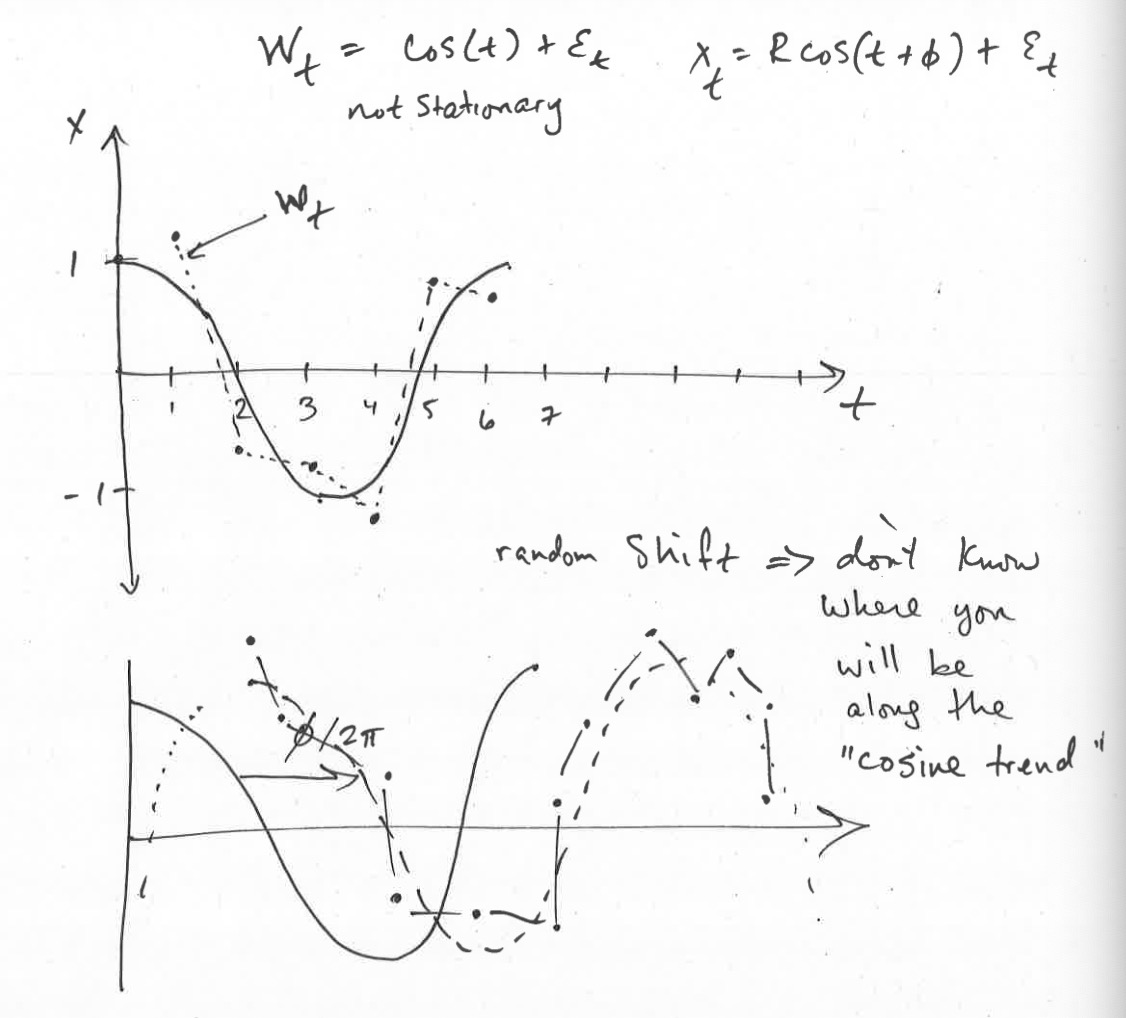 W_t = cos(t) + ε_t    X_t = R cos(t + ϕ) + ε_t
not stationary
X
W_t
1
1 2 3 4 5 6 7
t
-1
random shift => don't know
where you
will be
along the
"cosine trend"
ϕ/2π